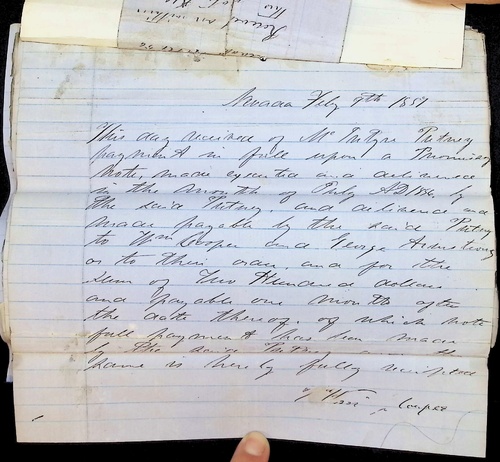 Nevada Feby 9th 1857
This day received of McIntyre Putney
payment in full upon a Promissory
Note, made executed and delivered
in the month of July AD 1856, by
the said Putney, and delivered and
made payable by the said Putney
to Wm Cooper and George Armstrong
or to their order, and for the
Sum of Two Hundred dollars
and payable one month after
the date thereof of which note
full payment has been made
by the said Putney and the
same is hereby fully receipted
Cooper